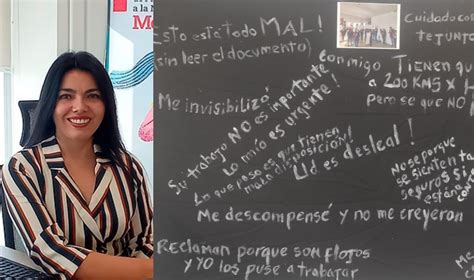 Me
Esto está todo MAL!
(sin leer el documento)
Cuidado con
te junto
conmigo TIENEN qu
a 200 KMS x H
pero se que NO
Me invisibilizó
Su trabajo NO es importante,
Lo mío es urgente!
Lo que pasa es que tienes
mala disposición!
Ud es desleal!
No se porque
se sienten
seguros si
están
Me descompensé y no me creyeron
RECLAMAN porque son flojos
y yo los puse a trabajar